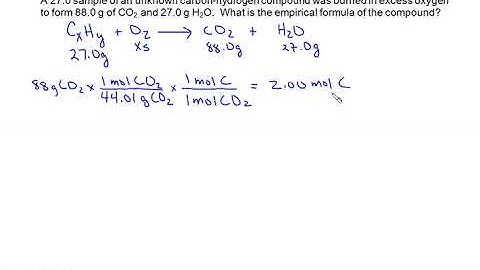 A 27.0 sample of an unknown carbon-hydrogen compound was burned in excess oxygen
to form 88.0 g of CO₂ and 27.0 g H₂O. What is the empirical formula of the compound?
CₓHᵧ + O₂ → CO₂ + H₂O
27.0g xs 88.0g 27.0g
88gCO₂ × 1 mol CO₂ / 44.01 g CO₂ × 1 mol C / 1 mol CO₂ = 2.00 mol C